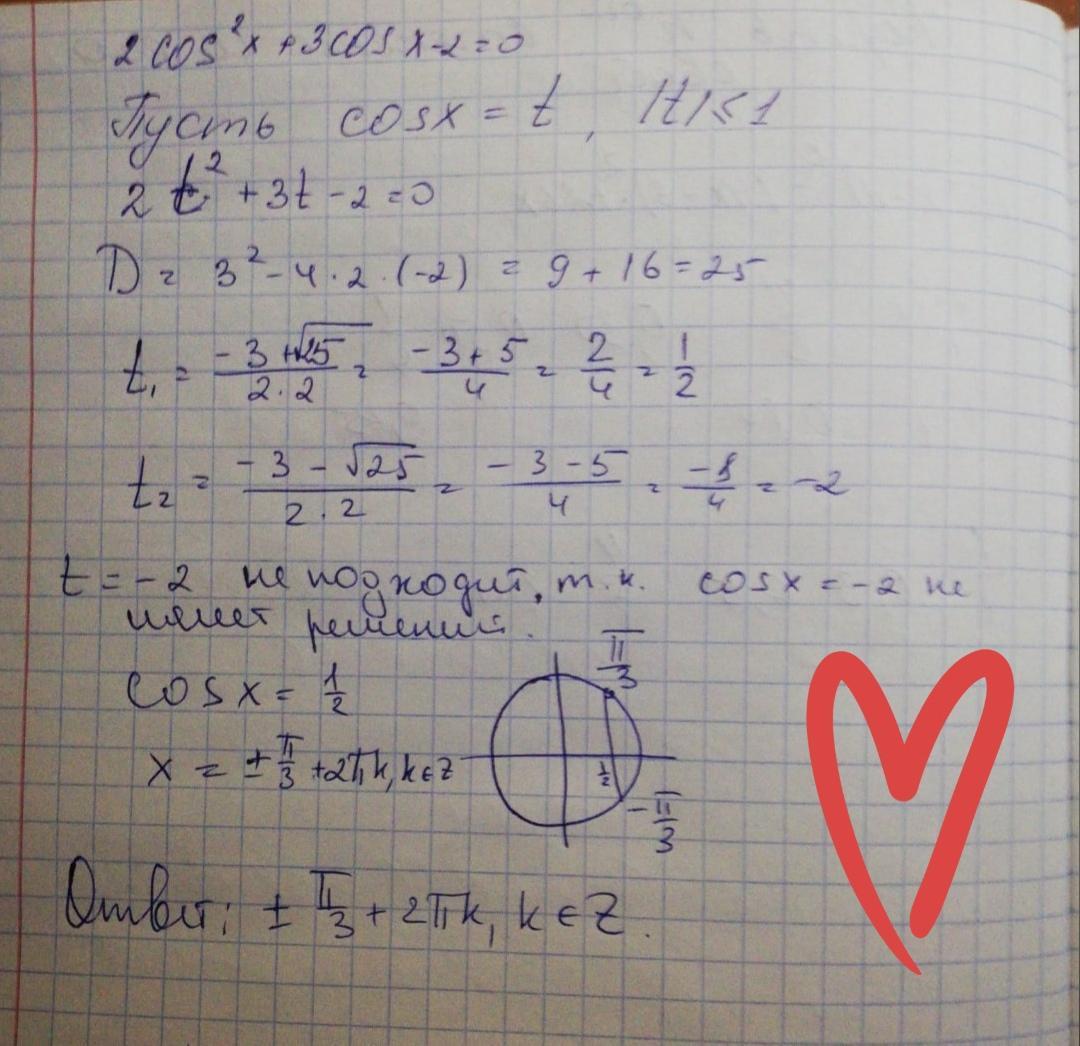 2cos²x+3cosx-2=0
Пусть cosx = t, |t|≤1
2t²+3t-2=0
D = 3²-4·2·(-2) = 9+16=25
t₁ = (-3+√25)/(2·2) = (-3+5)/4 = 2/4 = 1/2
t₂ = (-3-√25)/(2·2) = (-3-5)/4 = -8/4 = -2
t = -2 не подходит, т.к. cosx = -2 не
имеет решений.
cosx = 1/2
π/3
x = ±π/3+2πk, k∈Z
1/2
-π/3
Ответ: ±π/3+2πk, k∈Z.